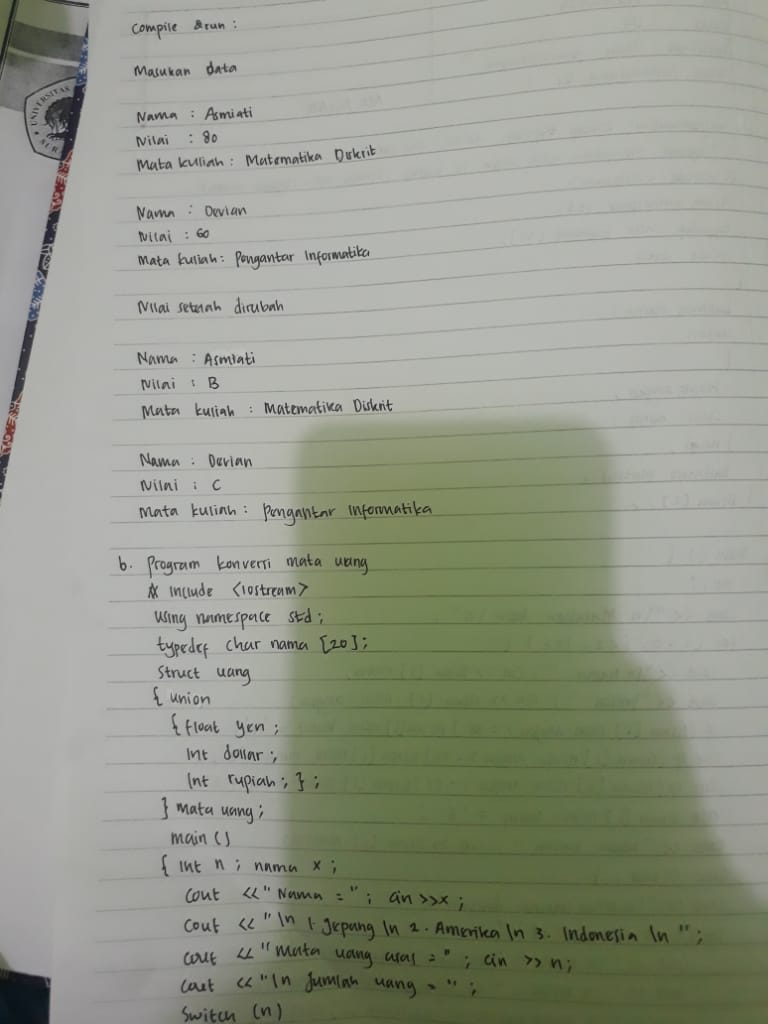 UNIVERSITAS
Compile & run :
Masukan data
Nama : Asmiati
Nilai : 80
Mata kuliah : Matematika Diskrit
Nama : Devian
Nilai : 60
Mata kuliah : Pengantar Informatika
Nilai setelah dirubah
Nama : Asmiati
Nilai : B
Mata kuliah : Matematika Diskrit
Nama : Devian
Nilai : C
Mata kuliah : Pengantar Informatika
b. Program konversi mata uang
# include <iostream>
using namespace std ;
typedef char nama [20] ;
Struct uang
{ union
{ float yen ;
int dollar ;
Int rupiah ; } ;
} mata uang ;
main ()
{ int n ; nama x ;
cout << "Nama = " ; cin >> x ;
cout << "\n 1. Jepang \n 2. Amerika \n 3. Indonesia \n " ;
cout << "Mata uang asal = " ; cin >> n ;
cout << "\n Jumlah uang = " ;
Switch (n)